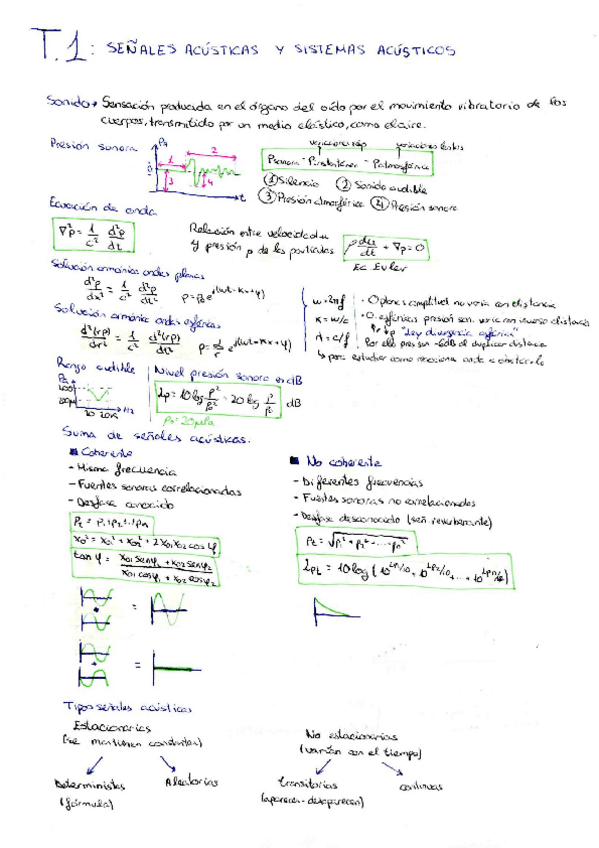 T.1: SEÑALES ACÚSTICAS Y SISTEMAS ACÚSTICOS
Sonido → Sensación producida en el órgano del oído por el movimiento vibratorio de los
cuerpos, transmitido por un medio elástico, como el aire.
Presión sonora
Psonora = Pinstantánea - Patmosférica
① Silencio ② Sonido audible
③ Presión atmosférica ④ Presión sonora
Ecuación de onda
∇²p = 1/c² d²p/dt
Relación entre velocidad u
y presión p de las partículas
ρ du/dt + ∇p = 0
Ec Euler
Solución armónica ondas planas
d²p/dx² = 1/c² d²p/dt
Solución armónica ondas esféricas
d²(rp)/dr² = 1/c² d²(rp)/dt
ω = 2πf
K = ω/c
λ = c/f
· O planas amplitud no varía con distancia
· O. esféricas presión son. varía con inverso distancia
"Ley divergencia esférica"
Por ello presión -6dB al duplicar distancia
↳ para estudiar como reacciona onda a obstáculo
Rango audible
20 20K Hz
Nivel presión sonora en dB
Lp = 10 log p²/p0² = 20 log p/p0 dB
p0 = 20 µPa
Suma de señales acústicas.
■ Coherente
- Misma frecuencia
- Fuentes sonoras correlacionadas
- Desfase conocido
Pt = P1 + P2 + ... + Pn
X0² = X01² + X02² + 2X01X02 cos φ
tan φ = (X01 sen φ1 + X02 sen φ2)/(X01 cos φ1 + X02 cos φ2)
■ No coherente
- Diferentes frecuencias
- Fuentes sonoras no correlacionadas
- Desfase desconocido (señ reverberante)
Pt = √(P1² + P2² + ... Pn²)
Lpt = 10 log (10^(Lp1/10) + 10^(Lp2/10) + ... + 10^(Lpn/10))
Tipos señales acústicas
Estacionarias
(se mantienen constantes)
Deterministas
(fórmula)
Aleatorias
No estacionarias
(varían con el tiempo)
transitorias
(aparecen - desaparecen)
continuas